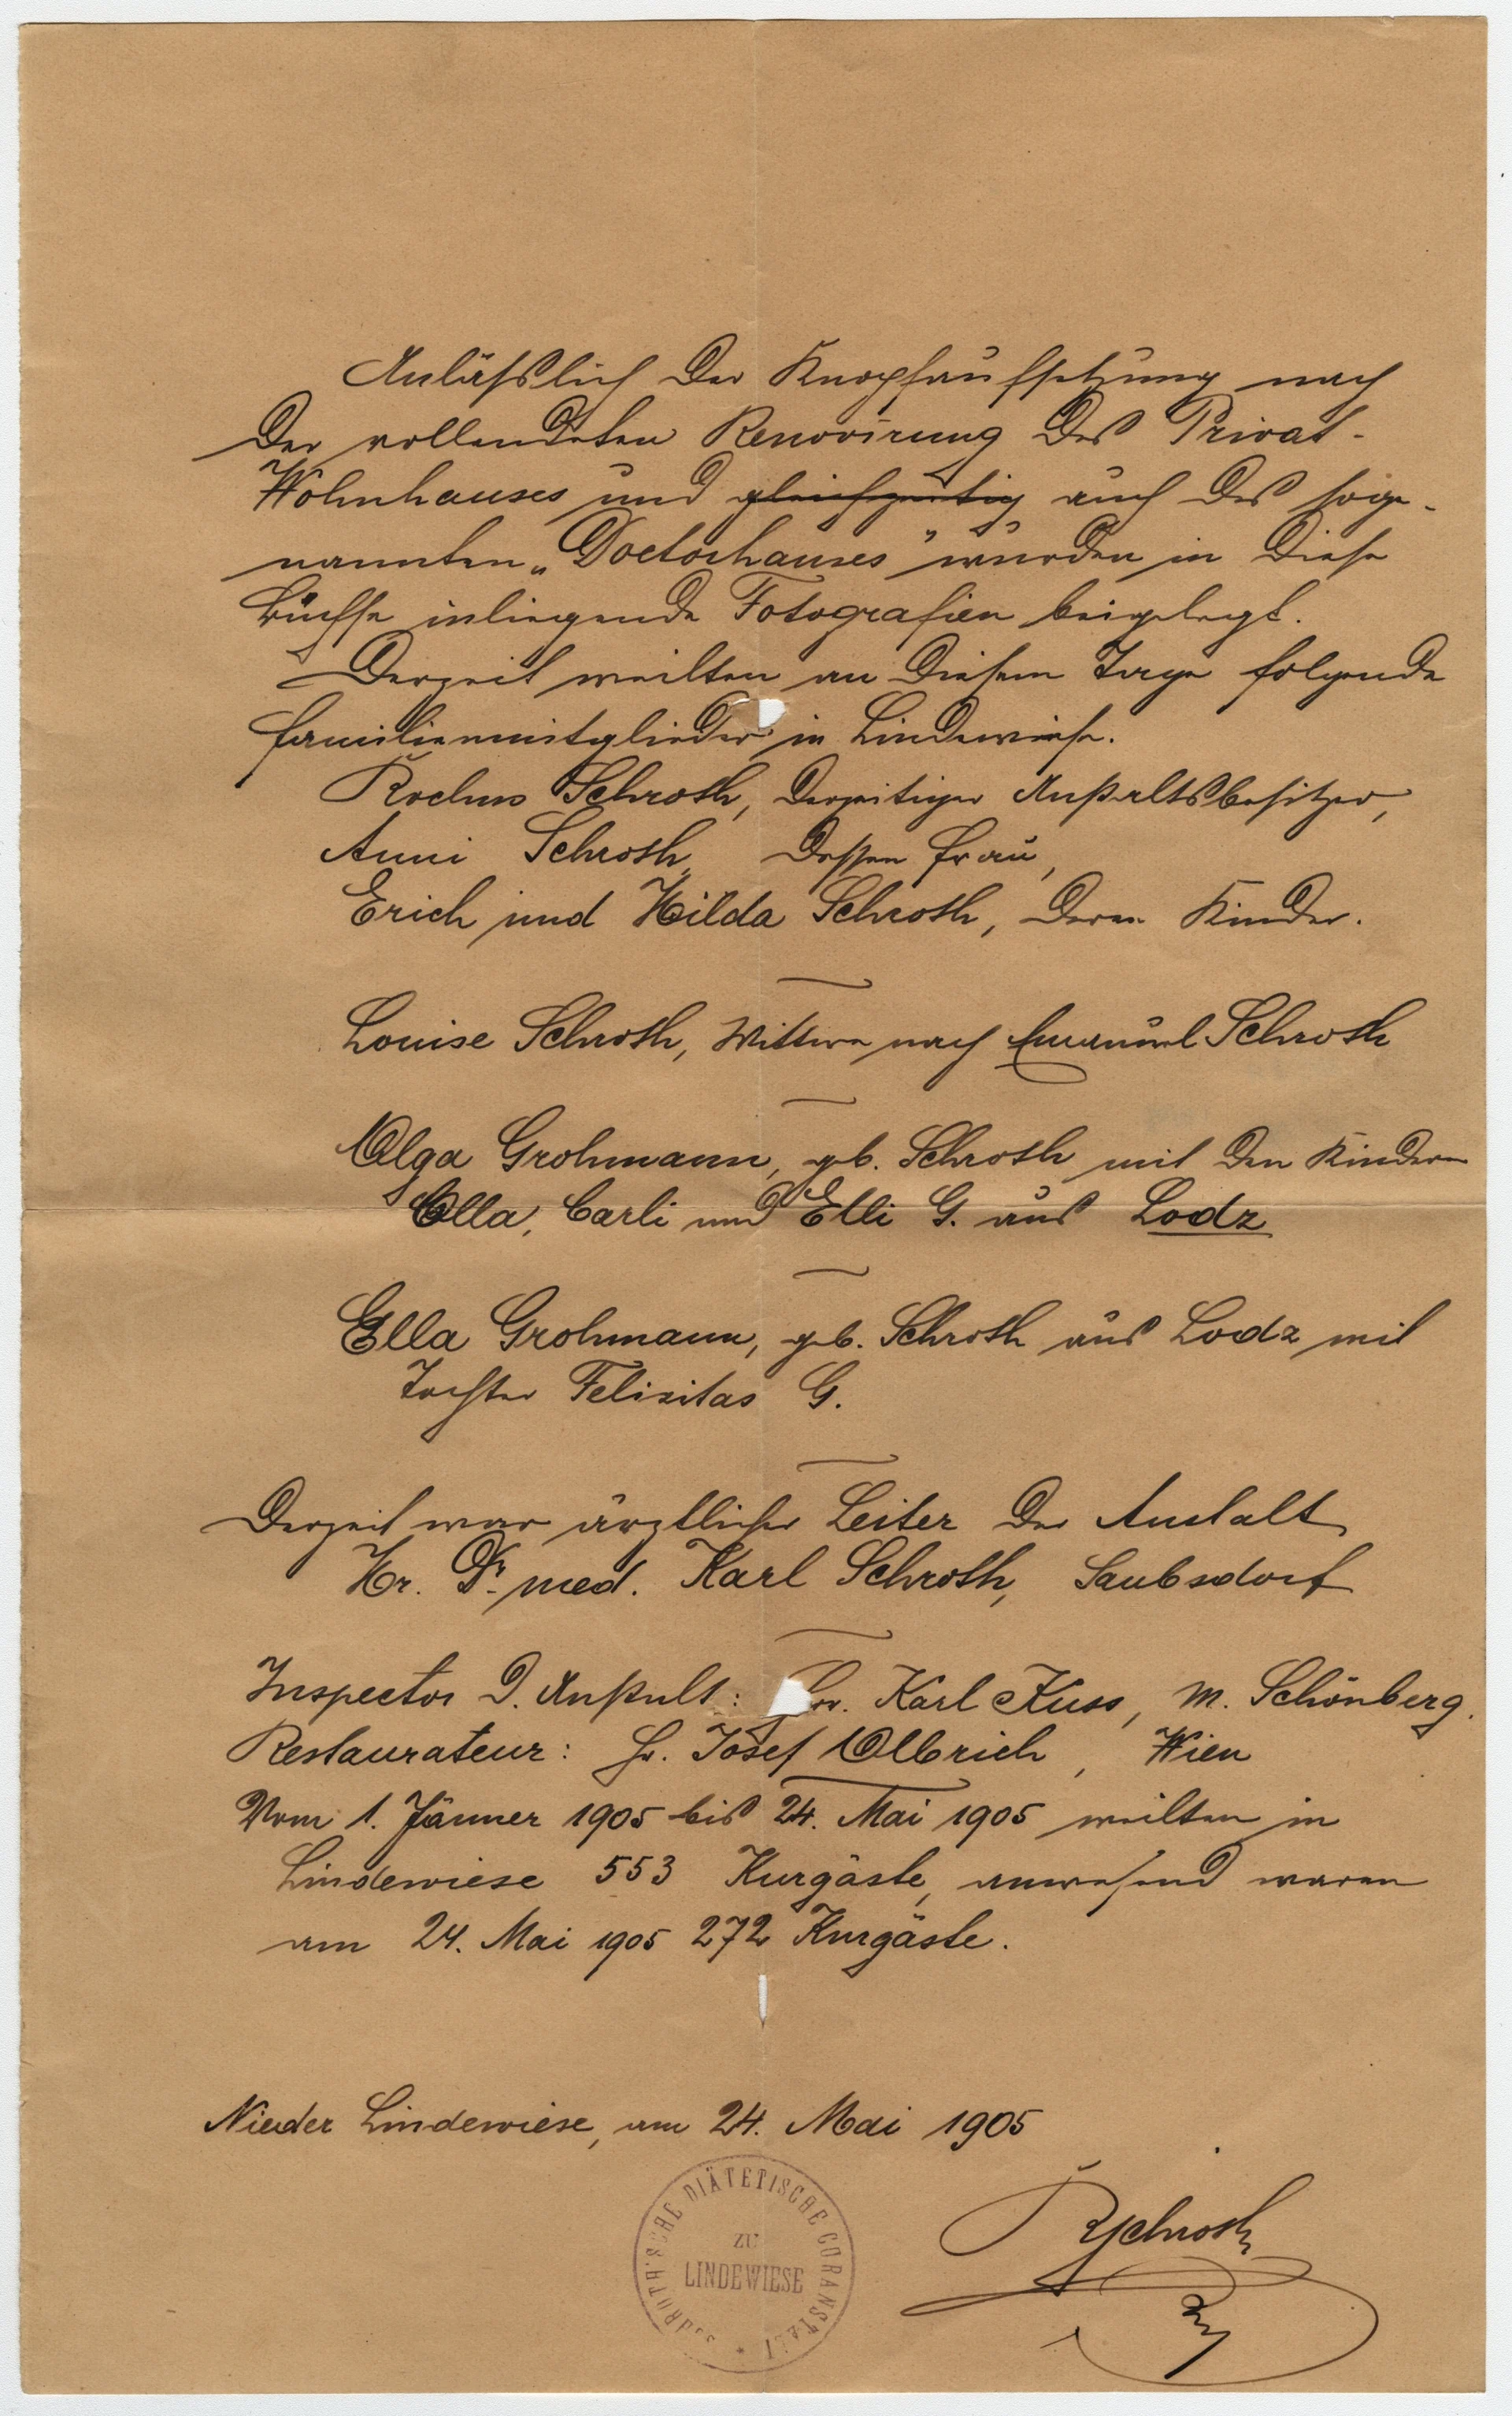 Anläßlich der Knopfaufsetzung nach
der vollendeten Renovirung des Privat-
Wohnhauses und gleichzeitig auch des soge-
nannten „Doctorhauses" wurden in diese
Büchse inliegende Fotografien beigelegt.
Derzeit weilten an diesem Tage folgende
Familienmitglieder in Lindewiese.
Rochus Schroth, derzeitiger Anstaltsbesitzer,
Anni Schroth, dessen Frau,
Erich und Hilda Schroth, deren Kinder.
Louise Schroth, Wittwe nach Emanuel Schroth
Olga Grohmann, geb. Schroth mit den Kindern
Olla, Carli und Elli G. aus Lodz
Ella Grohmann, geb. Schroth aus Lodz mit
Tochter Felizitas G.
Derzeit war ärztlicher Leiter der Anstalt
Hr. Dr. med. Karl Schroth, Saubsdorf
Inspector d. Anstalt: Hr. Karl Kuss, M. Schönberg.
Restaurateur: Hr. Josef Olbrich, Wien
Vom 1. Jänner 1905 bis 24. Mai 1905 weilten in
Lindewiese 553 Kurgäste, anwesend waren
am 24. Mai 1905 272 Kurgäste.
Nieder Lindewiese, am 24. Mai 1905
SCHROTH'SCHE DIÄTETISCHE CURANSTALT
ZU
LINDEWIESE
RSchroth